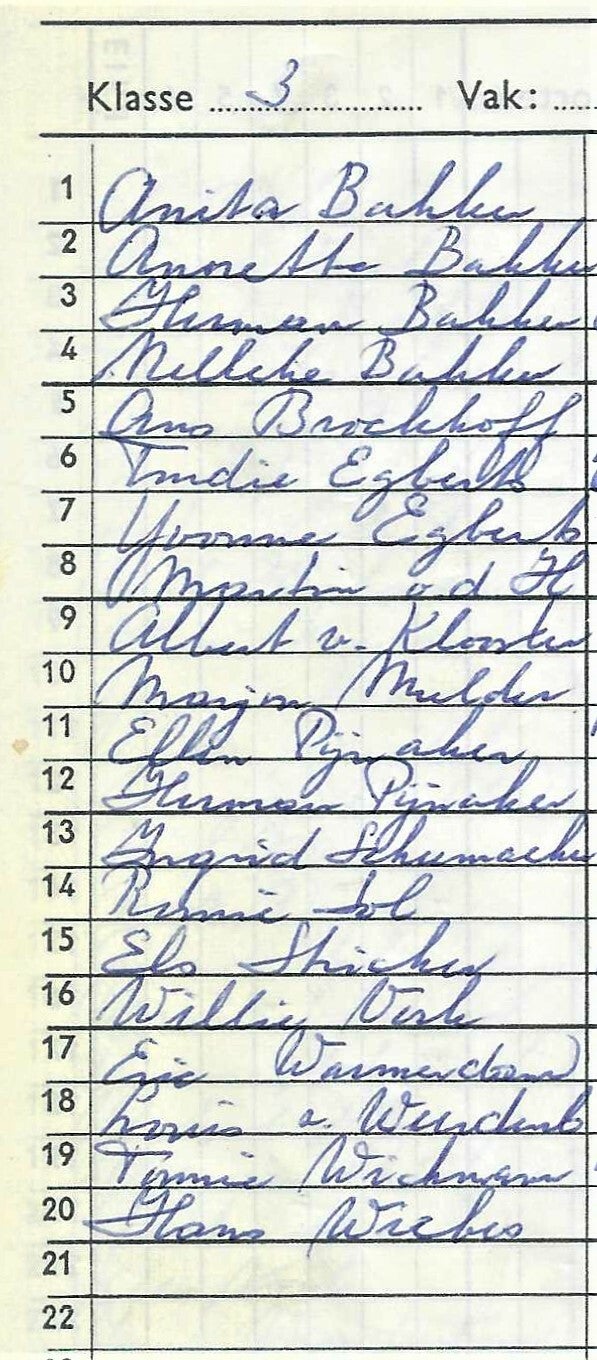 Klasse 3 Vak:
1 Anita Bakker
2 Annette Bakker
3 Herman Bakker
4 Nelleke Bakker
5 Ans Brockhoff
6 Trudie Egberts
7 Yvonne Egberts
8 Martin v d H
9 Albert v. Klooster
10 Marjon Mulder
11 Ellen Pijnaker
12 Herman Pijnaker
13 Ingrid Schumacher
14 Ronnie Sol
15 Els Stricker
16 Willie Vork
17 Eric Warmerdam
18 Louis v.
19 Tonnie Wichman
20 Hans Wiebes
21
22